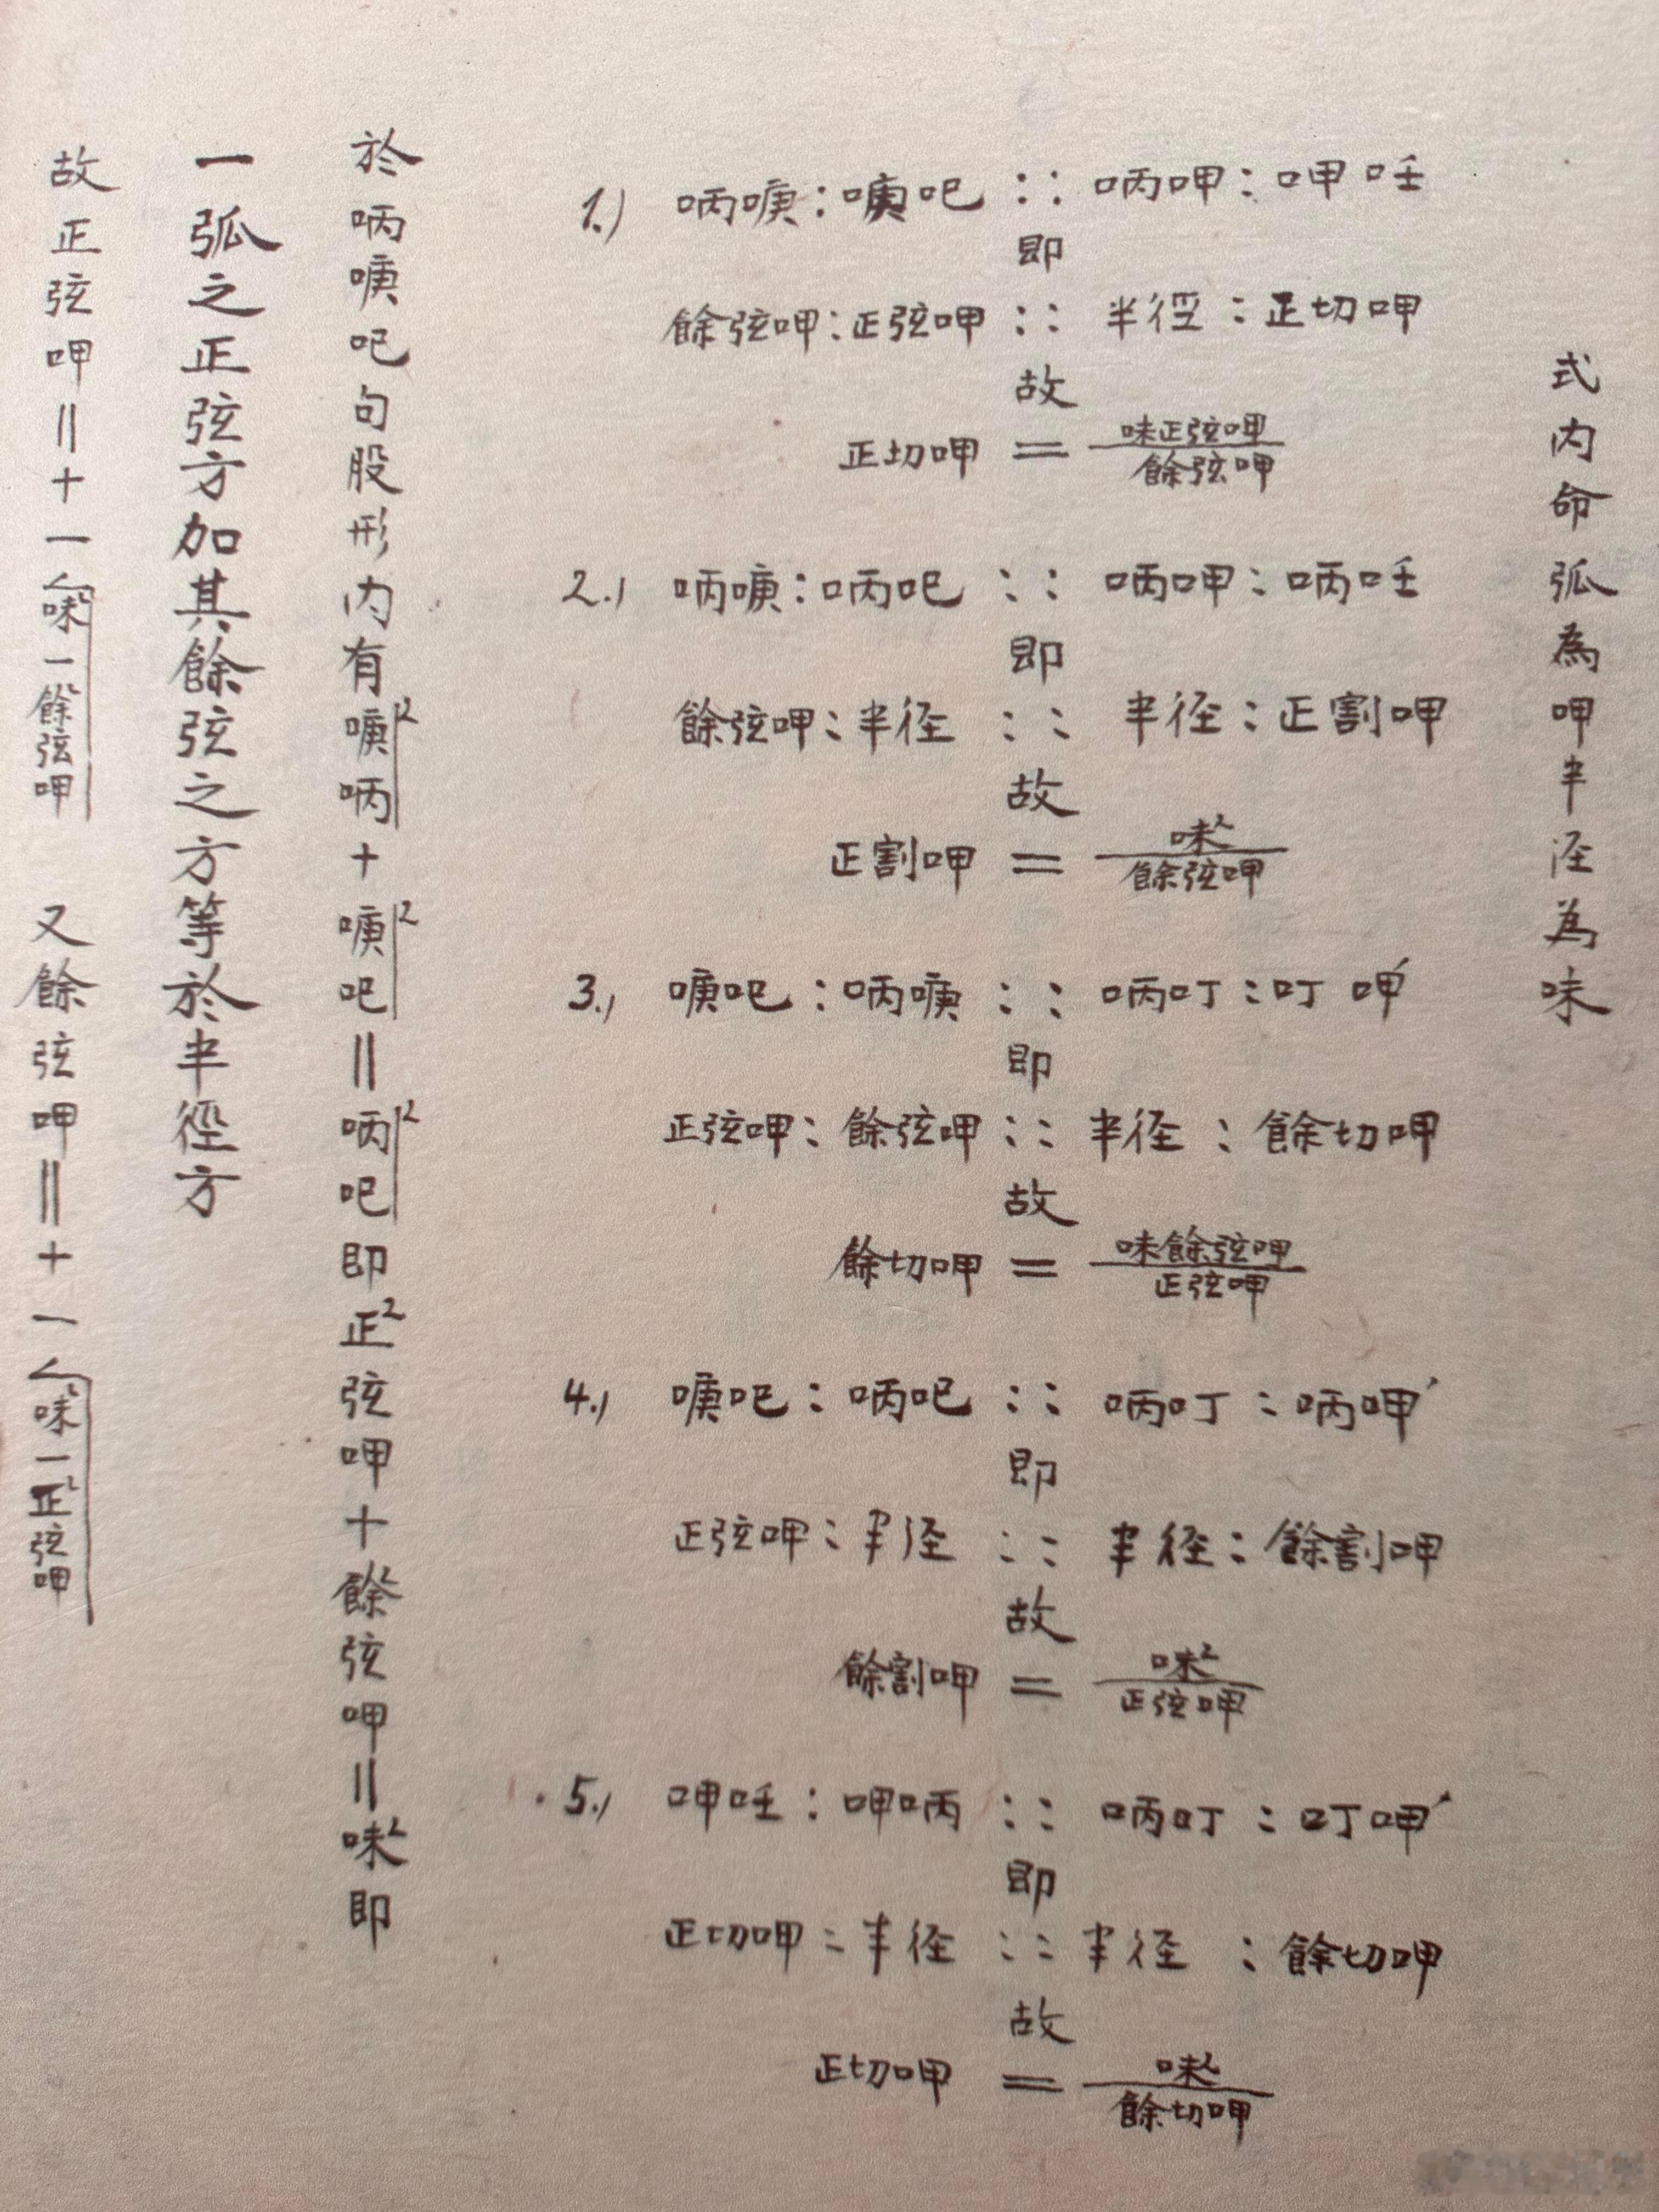 式内命弧為呷半徑為味
1.) 唡㖹:㖹吧 :: 唡呷:呷𠰃
即
餘弦呷:正弦呷 :: 半徑:正切呷
故
正切呷 = 味正弦呷/餘弦呷
2.) 唡㖹:唡吧 :: 唡呷:唡𠰃
即
餘弦呷:半径 :: 半径:正割呷
故
正割呷 = 味²/餘弦呷
3.) 㖹吧:唡㖹 :: 唡叮:叮呷′
即
正弦呷:餘弦呷 :: 半径:餘切呷
故
餘切呷 = 味餘弦呷/正弦呷
4.) 㖹吧:唡吧 :: 唡叮:唡呷′
即
正弦呷:半径 :: 半径:餘割呷
故
餘割呷 = 味²/正弦呷
5.) 呷𠰃:呷唡 :: 唡叮:叮呷′
即
正切呷:半径 :: 半径:餘切呷
故
正切呷 = 味²/餘切呷
於唡㖹吧句股形内有㖹唡²+㖹吧²=唡吧²即正²弦呷+餘²弦呷=味²即
一弧之正弦方加其餘弦之方等於半徑方
故正弦呷=+一√味²一餘²弦呷 又餘弦呷=+一√味²一正²弦呷